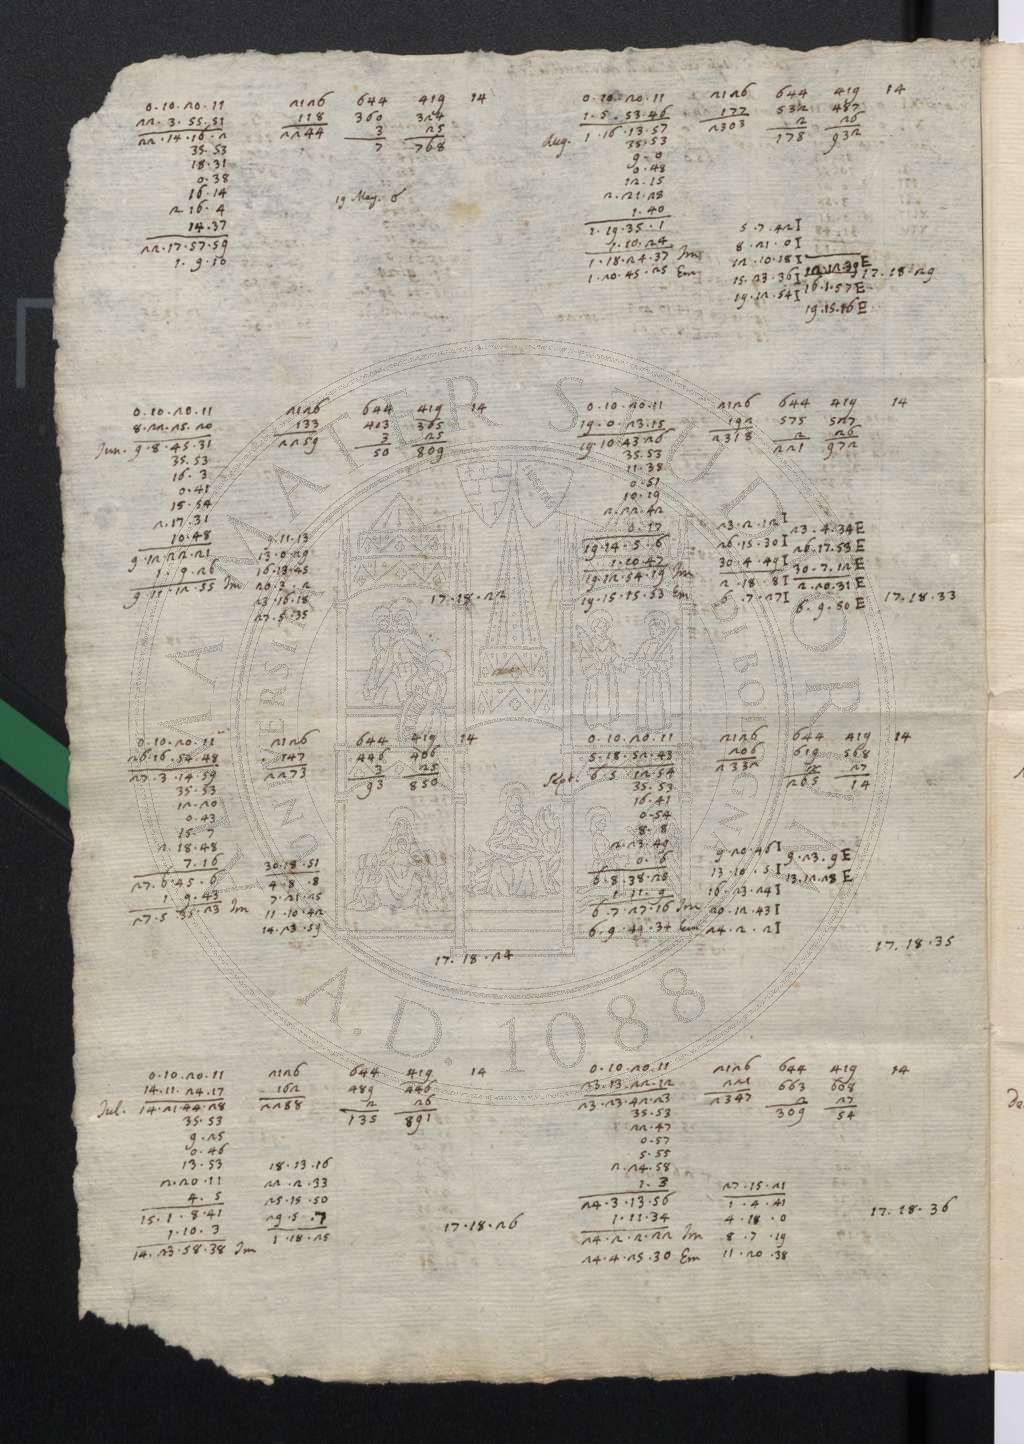 0.10.20.11 2126 644 419 14
22.3.55.51 118 360 324
22.14.16.2 2244 3 25
35.53 7 768
18.31
0.38
16.14
2.16.4 19 May. 6
14.37
22.17.57.59
1.9.10

0.10.20.11 2126 644 419 14
1.5.53.46 177 532 487
Aug. 1.16.13.57 2303 2 26
35.53 178 932
9.0
0.48
12.15
2.21.28
1.40
1.19.35.1 5.7.42 I
1.10.24 8.21.0 I
1.18.24.37 Im 12.10.18 I 12.12.39 E
1.20.45.25 Em 15.23.36 I 17.18.29
16.1.57 E
19.12.54 I
19.15.16 E

0.10.20.11 2126 644 419 14
8.22.25.20 133 403 365
Jun. 9.8.45.31 2259 3 25
35.53 50 809
16.3
0.41
15.54
2.17.31
10.48 9.11.13
9.12.22.21 13.0.29
1.9.26 16.13.45
9.11.12.55 Im 20.3.2
23.16.18 17.18.22
27.5.35

0.10.20.11 2126 644 419 14
19.0.23.15 192 575 527
19.10.43.26 2318 2 26
35.53 221 972
11.38
0.51
10.19
2.22.42
0.17 23.2.12 I 23.4.34 E
19.14.5.6 26.15.30 I 26.17.53 E
1.10.47 30.4.49 I 30.7.12 E
19.12.54.19 Im 2.18.8 I 2.20.31 E
19.15.15.53 Em 6.7.27 I 6.9.50 E 17.18.33

0.10.20.11 2126 644 419 14
26.16.54.48 147 446 406
27.3.14.59 2273 3 25
35.53 93 850
12.20
0.43
15.7
2.18.48
7.16 30.18.51
27.6.45.6 4.8.8
1.9.43 7.21.25
27.5.35.23 Im 11.10.42
14.23.59
17.18.24

0.10.20.11 2126 644 419 14
5.18.52.43 206 619 568
Sept. 6.5.12.54 2332 2 27
35.53 265 14
16.41
0.54
8.8
2.23.49
0.6 9.20.46 I 9.23.9 E
6.8.38.25 13.10.5 I 13.12.28 E
1.11.9 16.23.24 I
6.7.27.16 Im 20.12.43 I
6.9.49.34 Em 24.2.2 I
17.18.35

0.10.20.11 2126 644 419 14
14.11.24.17 162 489 446
Jul. 14.21.44.28 2288 2 26
35.53 135 891
9.25
0.46
13.53 18.13.16
2.20.11 22.2.33
4.5 25.15.50
15.1.8.41 29.5.7
1.10.3 1.18.25 17.18.26
14.23.58.38 Im

0.10.20.11 2126 644 419 14
23.13.22.12 221 663 608
23.23.42.23 2347 2 27
35.53 309 54
22.47
0.57
5.55
2.24.58
1.3 27.15.21
24.3.13.56 1.4.41
1.11.34 4.18.0 17.18.36
24.2.2.22 Im 8.7.19
24.4.25.30 Em 11.20.38

ALMA MATER STUDIORUM
A.D. 1088